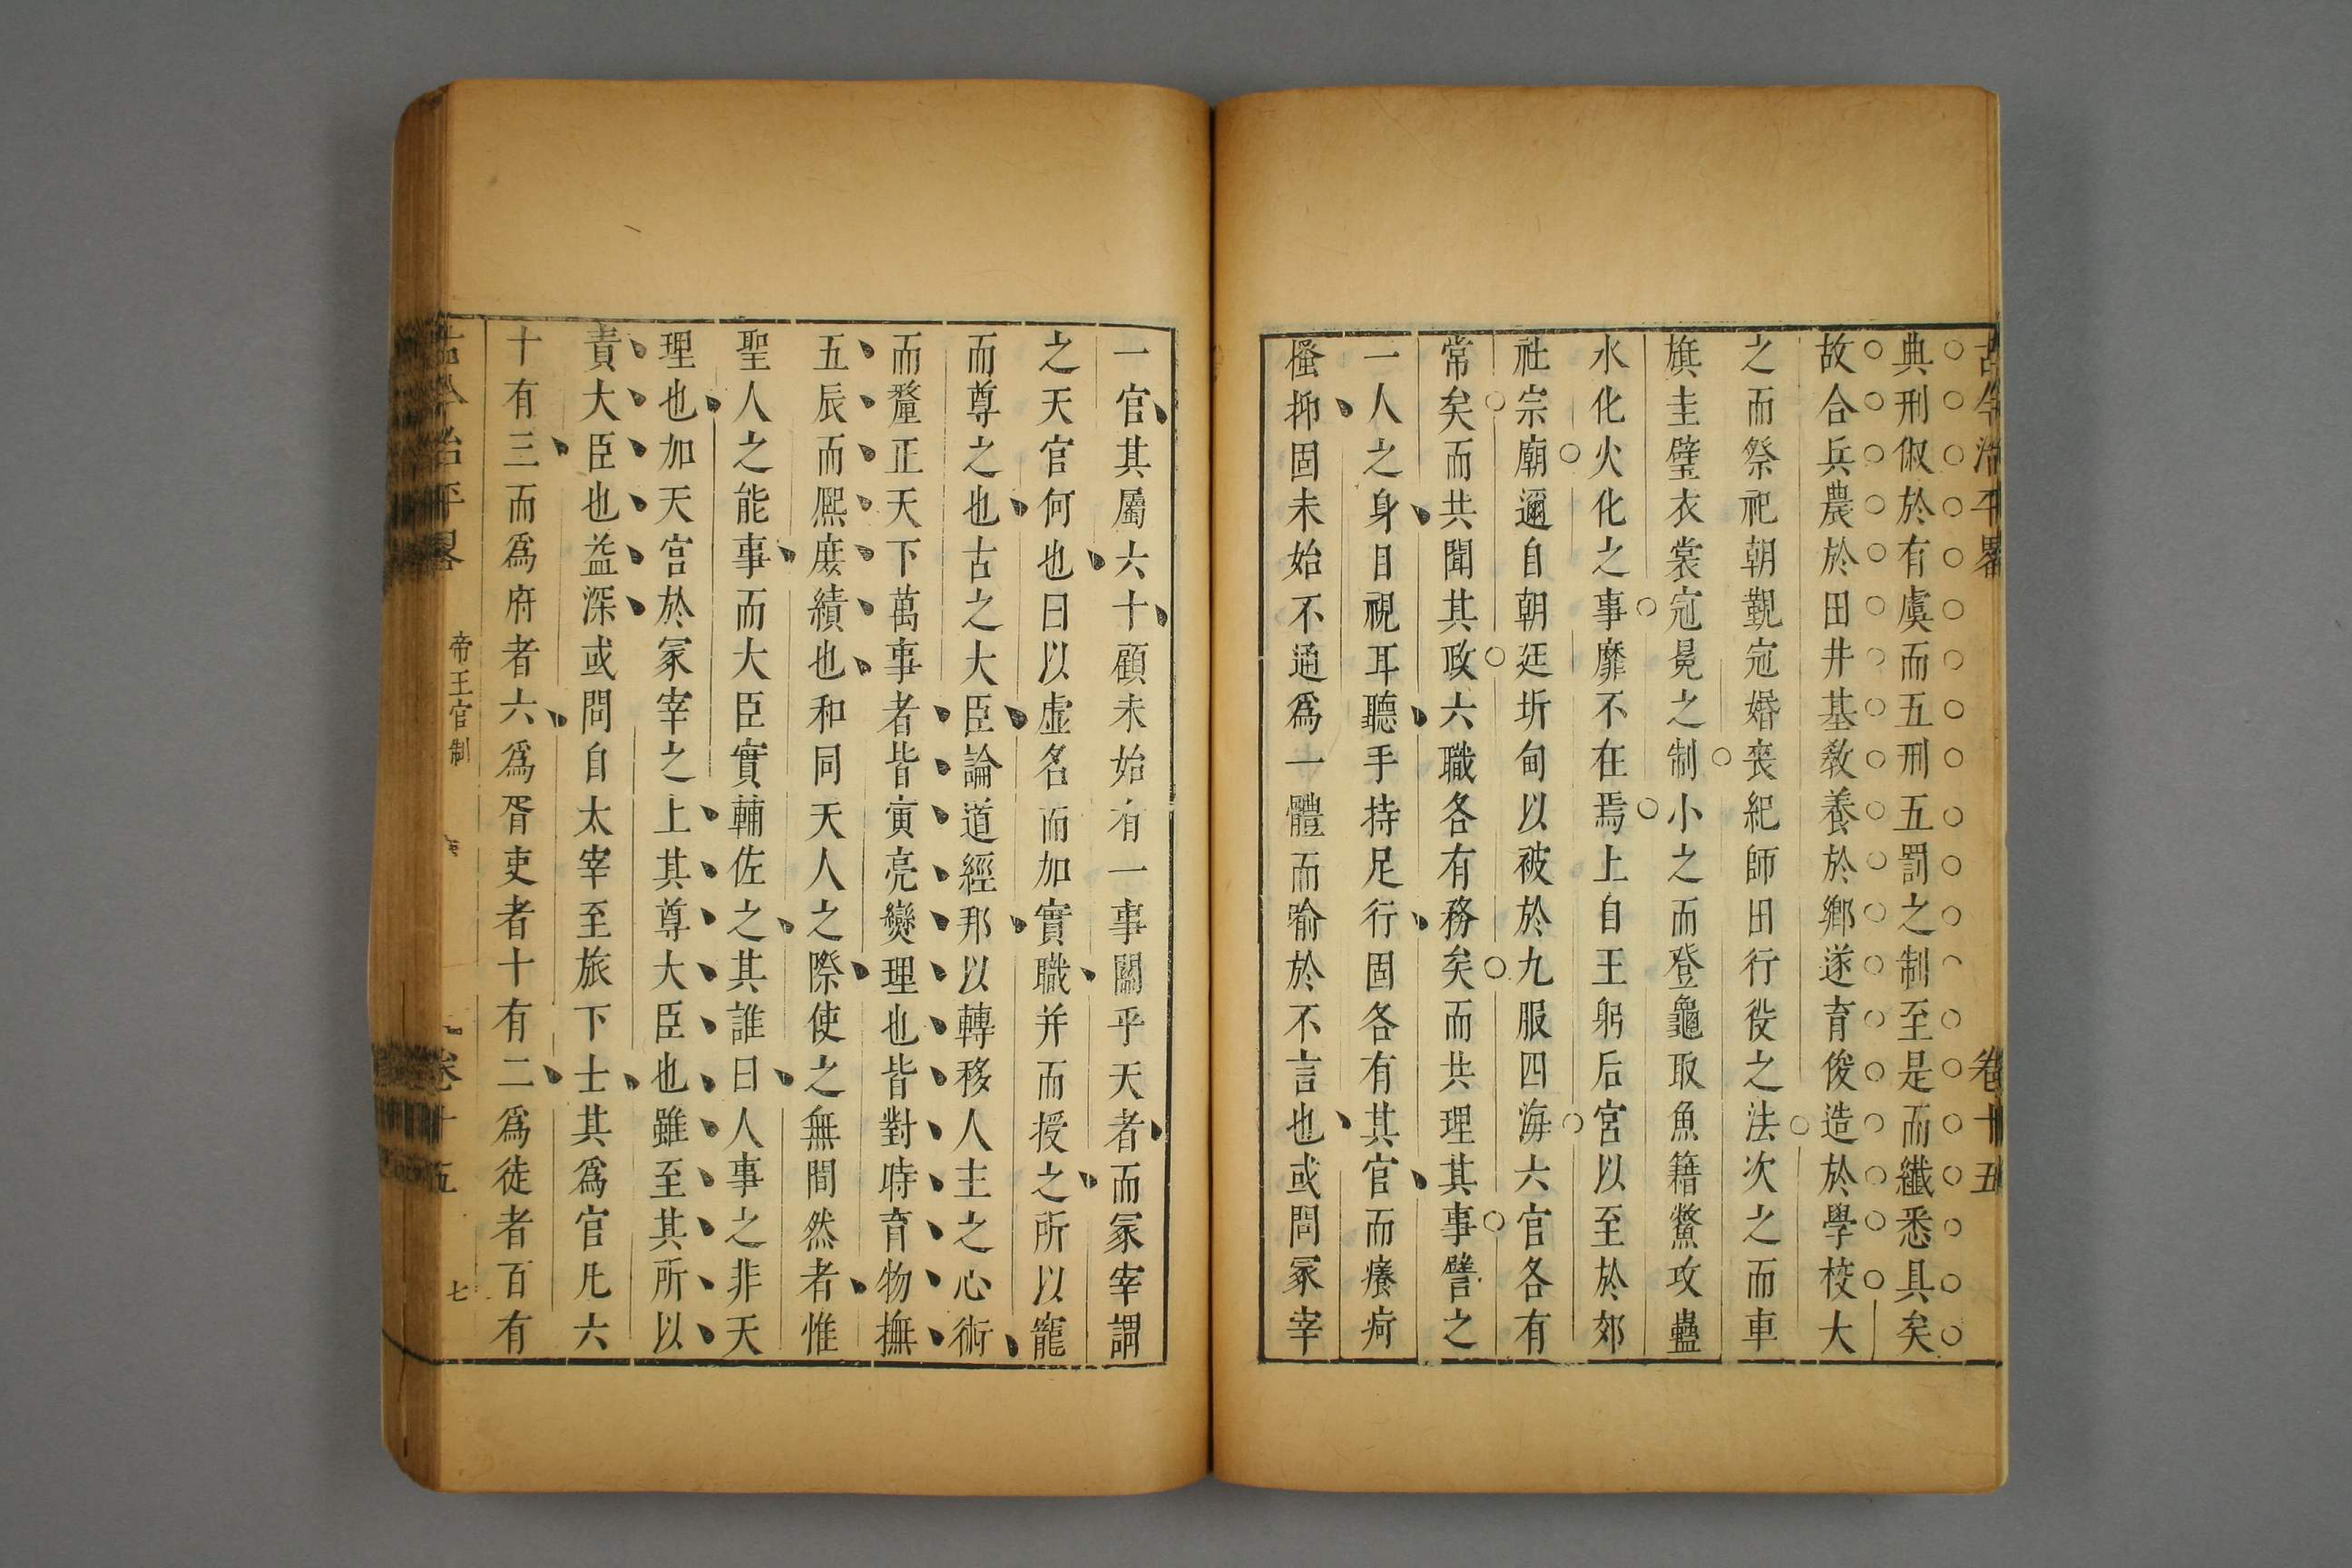 古今治平畧 卷十五
典刑俶於有虞而五刑五罰之制至是而纖悉具矣
故合兵農於田井基教養於鄉遂育俊造於學校大
之而祭祀朝覲冠婚喪紀師田行役之法次之而車
旗圭璧衣裳冠冕之制小之而登龜取魚籍鱉攻蠱
水化火化之事靡不在焉上自王躬后宮以至於郊
社宗廟邇自朝廷圻甸以被於九服四海六官各有
常矣而共聞其政六職各有務矣而共理其事譬之
一人之身目視耳聽手持足行固各有其官而癢疴
搔抑固未始不通爲一體而喻於不言也或問冢宰
一官其屬六十顧未始有一事關乎天者而冢宰謂
之天官何也曰以虛名而加實職并而授之所以寵
而尊之也古之大臣論道經邦以轉移人主之心術
而釐正天下萬事者皆寅亮爕理也皆對時育物撫
五辰而熈庶績也和同天人之際使之無間然者惟
聖人之能事而大臣實輔佐之其誰曰人事之非天
理也加天官於冢宰之上其尊大臣也雖至其所以
責大臣也益深或問自太宰至旅下士其爲官凡六
十有三而爲府者六爲胥吏者十有二爲徒者百有
古今治平畧 帝王官制 卷十五 七